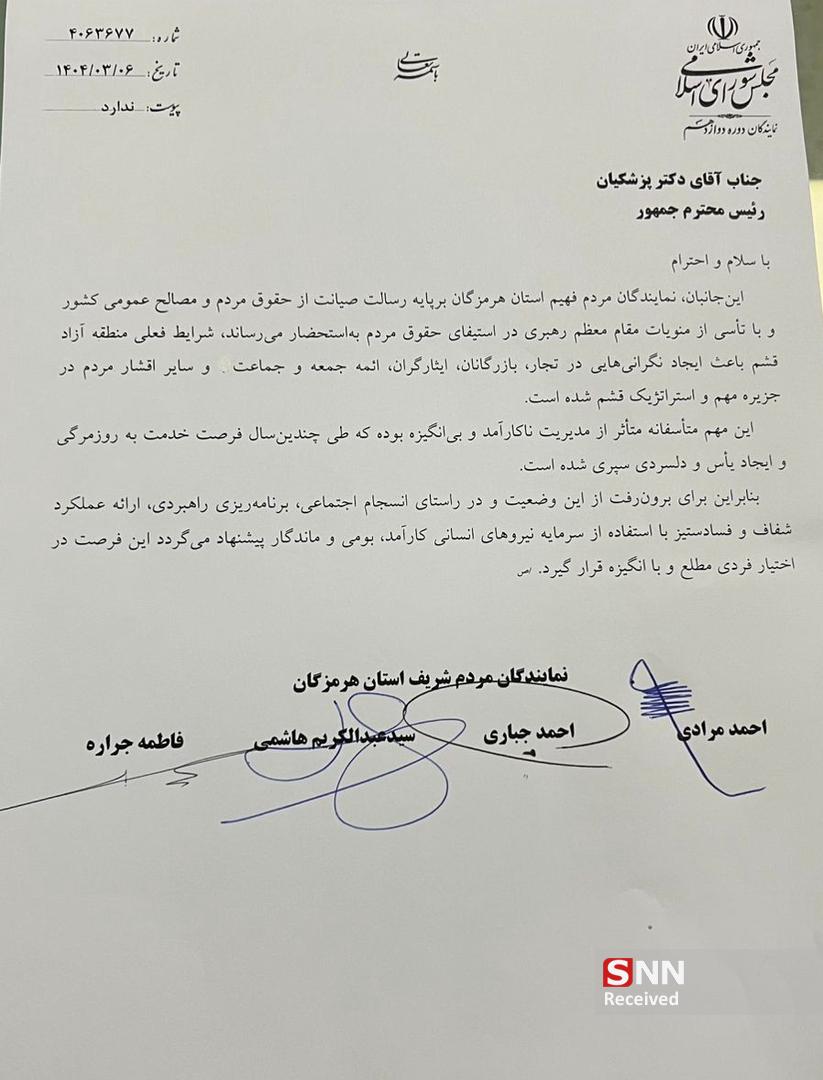 جمهوری اسلامی ایران
مجلس شورای اسلامی
نمایندگان دوره دوازدهم
باسمه تعالی
شماره: ۴۰۶۳۶۷۷
تاریخ: ۱۴۰۴/۰۳/۰۶
پیوست: ندارد
جناب آقای دکتر پزشکیان
رئیس محترم جمهور
با سلام و احترام
این‌جانبان، نمایندگان مردم فهیم استان هرمزگان برپایه رسالت صیانت از حقوق مردم و مصالح عمومی کشور
و با تأسی از منویات مقام معظم رهبری در استیفای حقوق مردم به‌استحضار می‌رساند، شرایط فعلی منطقه آزاد
قشم باعث ایجاد نگرانی‌هایی در تجار، بازرگانان، ایثارگران، ائمه جمعه و جماعت و سایر اقشار مردم در
جزیره مهم و استراتژیک قشم شده است.
این مهم متأسفانه متأثر از مدیریت ناکارآمد و بی‌انگیزه بوده که طی چندین‌سال فرصت خدمت به روزمرگی
و ایجاد یأس و دلسردی سپری شده است.
بنابراین برای برون‌رفت از این وضعیت و در راستای انسجام اجتماعی، برنامه‌ریزی راهبردی، ارائه عملکرد
شفاف و فسادستیز با استفاده از سرمایه نیروهای انسانی کارآمد، بومی و ماندگار پیشنهاد می‌گردد این فرصت در
اختیار فردی مطلع و با انگیزه قرار گیرد. /ص
نمایندگان مردم شریف استان هرمزگان
احمد مرادی احمد جباری سیدعبدالکریم هاشمی فاطمه جراره
SNN
Received